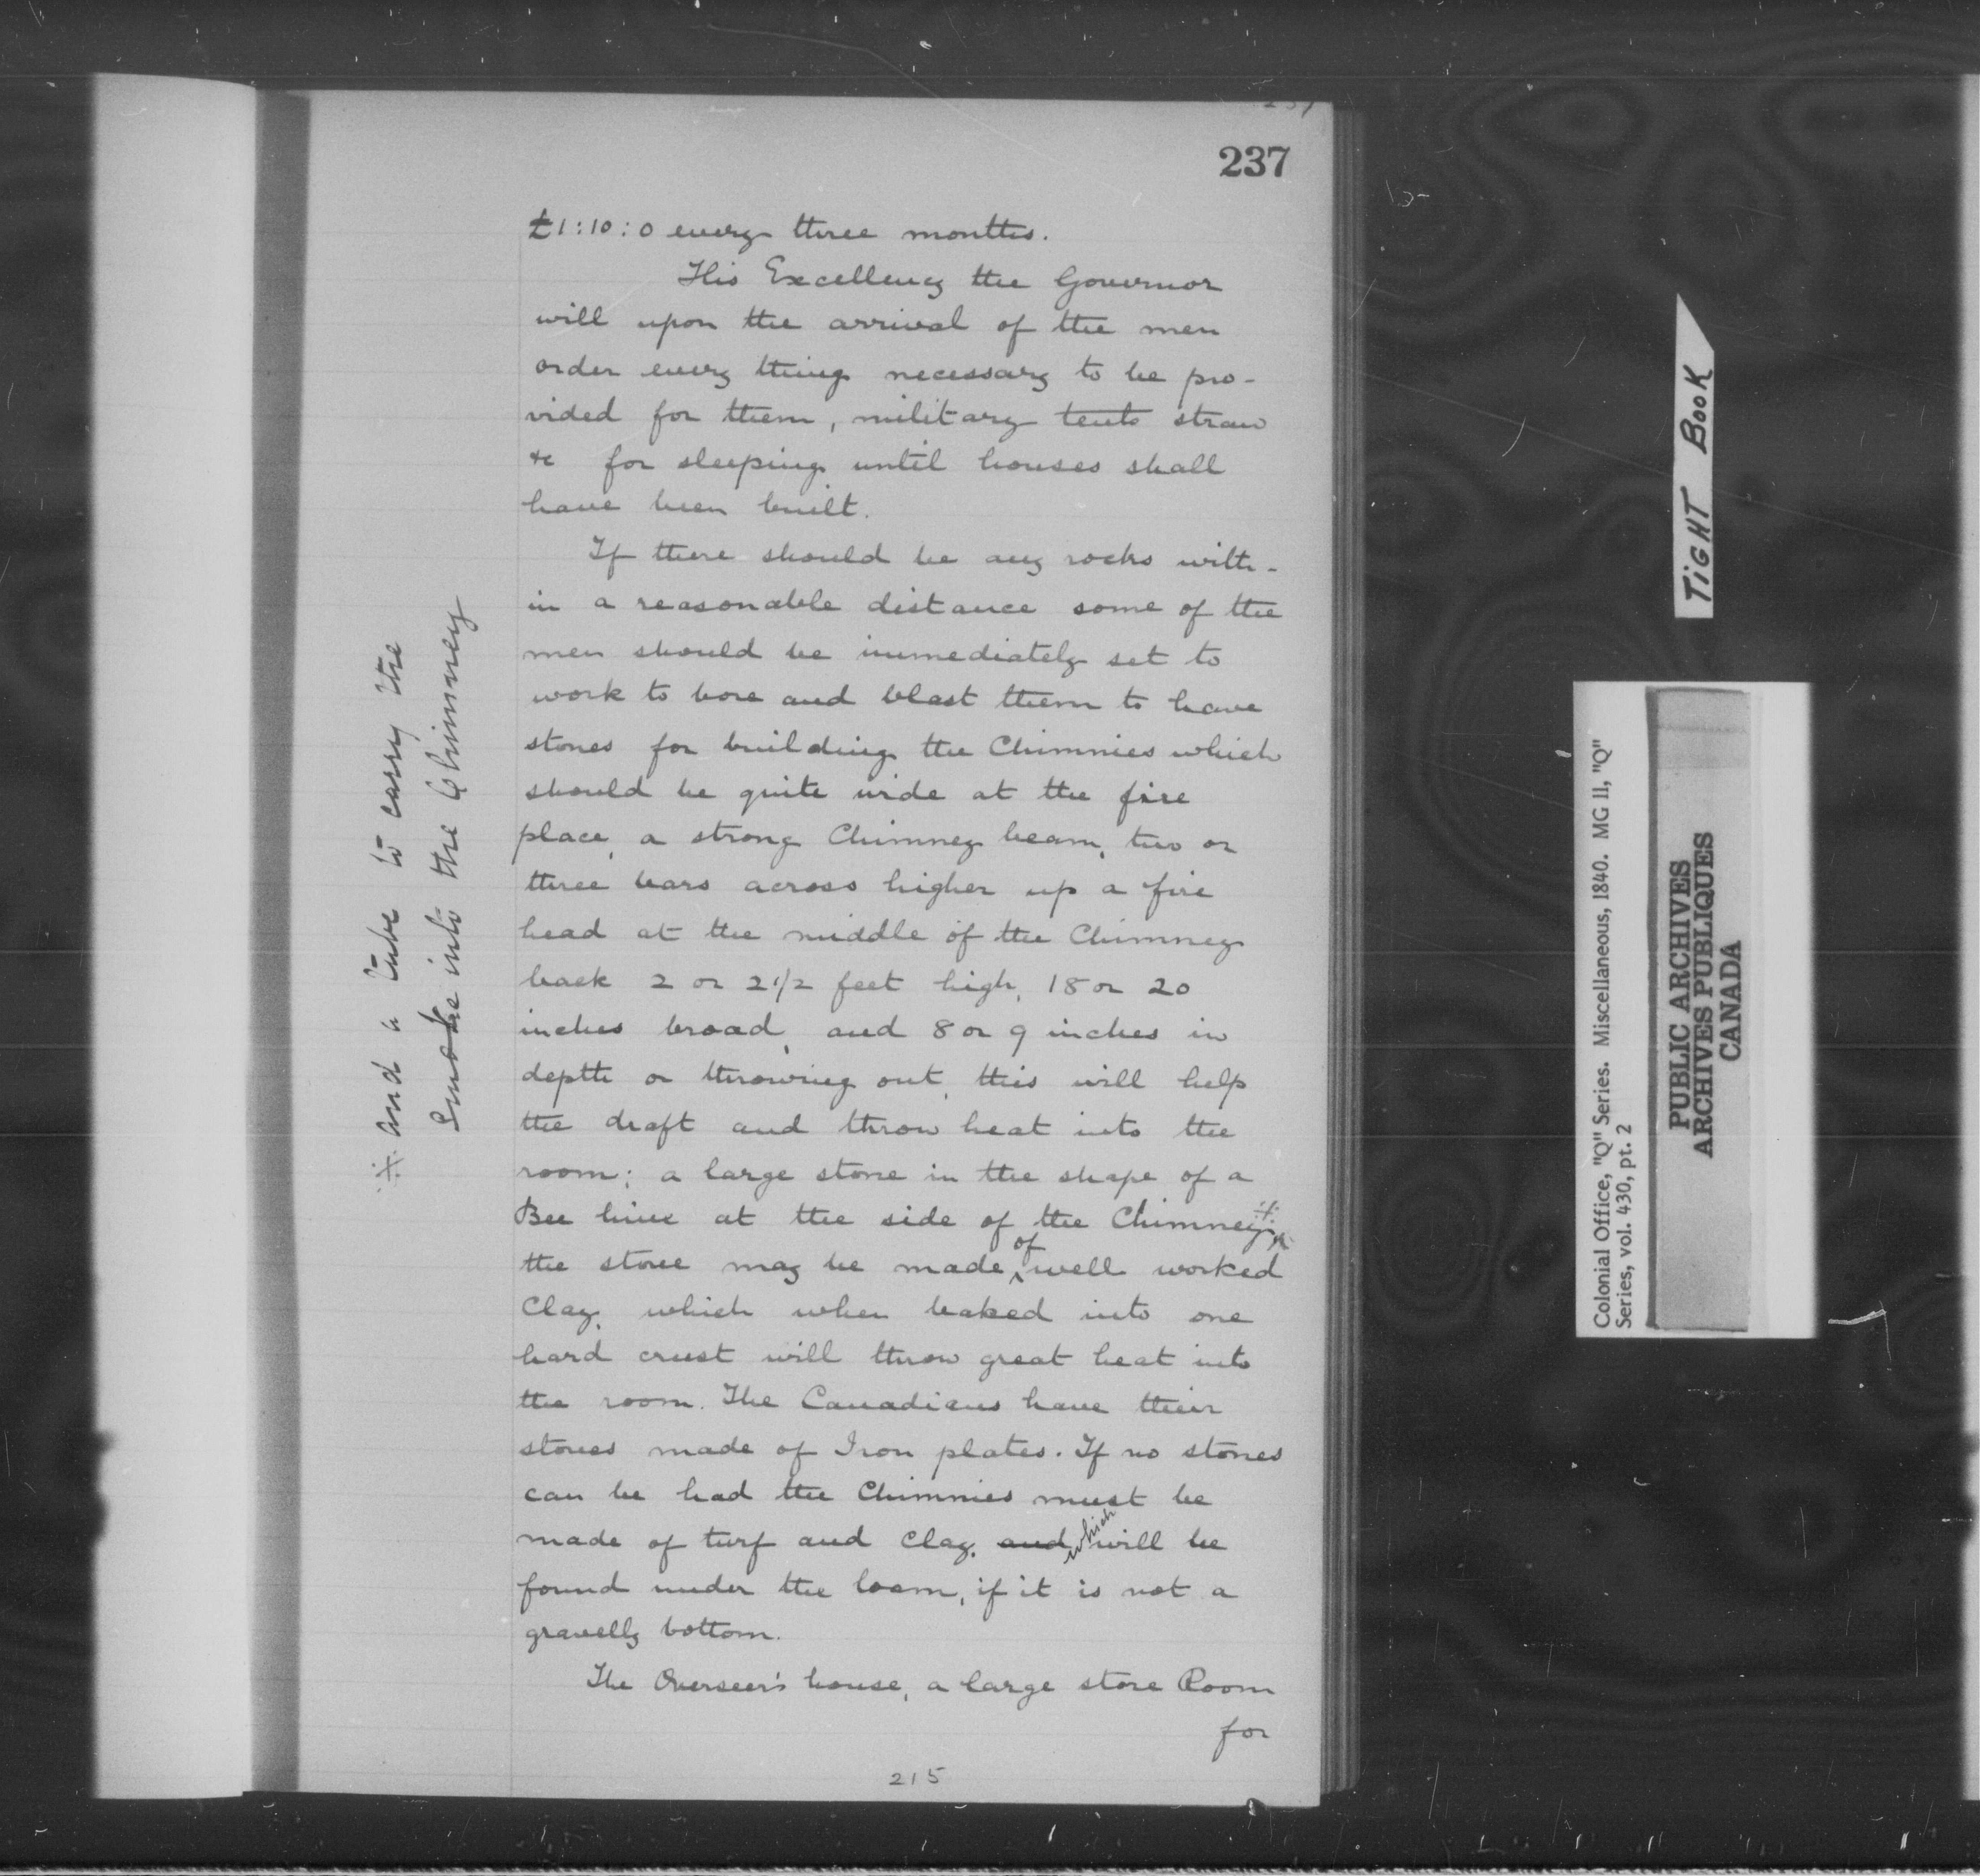 237
£1:10:0 every three months.
His Excellency the Governor
will upon the arrival of the men
order every thing necessary to be pro-
vided for them, military tents straw
&c for sleeping until houses shall
have been built.
If there should be any rocks with-
in a reasonable distance some of the
men should be immediately set to
work to bore and blast them to have
stones for building the Chimnies which
should be quite wide at the fire
place, a strong Chimney beam, two or
three bars across higher up a fire
head at the middle of the Chimney
back 2 or 2 1/2 feet high, 18 or 20
inches broad, and 8 or 9 inches in
depth or throwing out, this will help
the draft and throw heat into the
room; a large stone in the shape of a
Bee hive at the side of the Chimney, ※
the stove may be made of well worked
Clay, which when baked into one
hard crust will throw great heat into
the room. The Canadians have their
stoves made of Iron plates. If no stones
can be had the Chimnies must be
made of turf and Clay, and which will be
found under the loam, if it is not a
gravelly bottom.
The Overseer's house, a large store Room
for
215
※ and a tube to carry the
Smoke into the Chimney
TIGHT BOOK
Colonial Office, "Q" Series. Miscellaneous, 1840. MG 11, "Q"
Series, vol. 430, pt. 2
PUBLIC ARCHIVES
ARCHIVES PUBLIQUES
CANADA